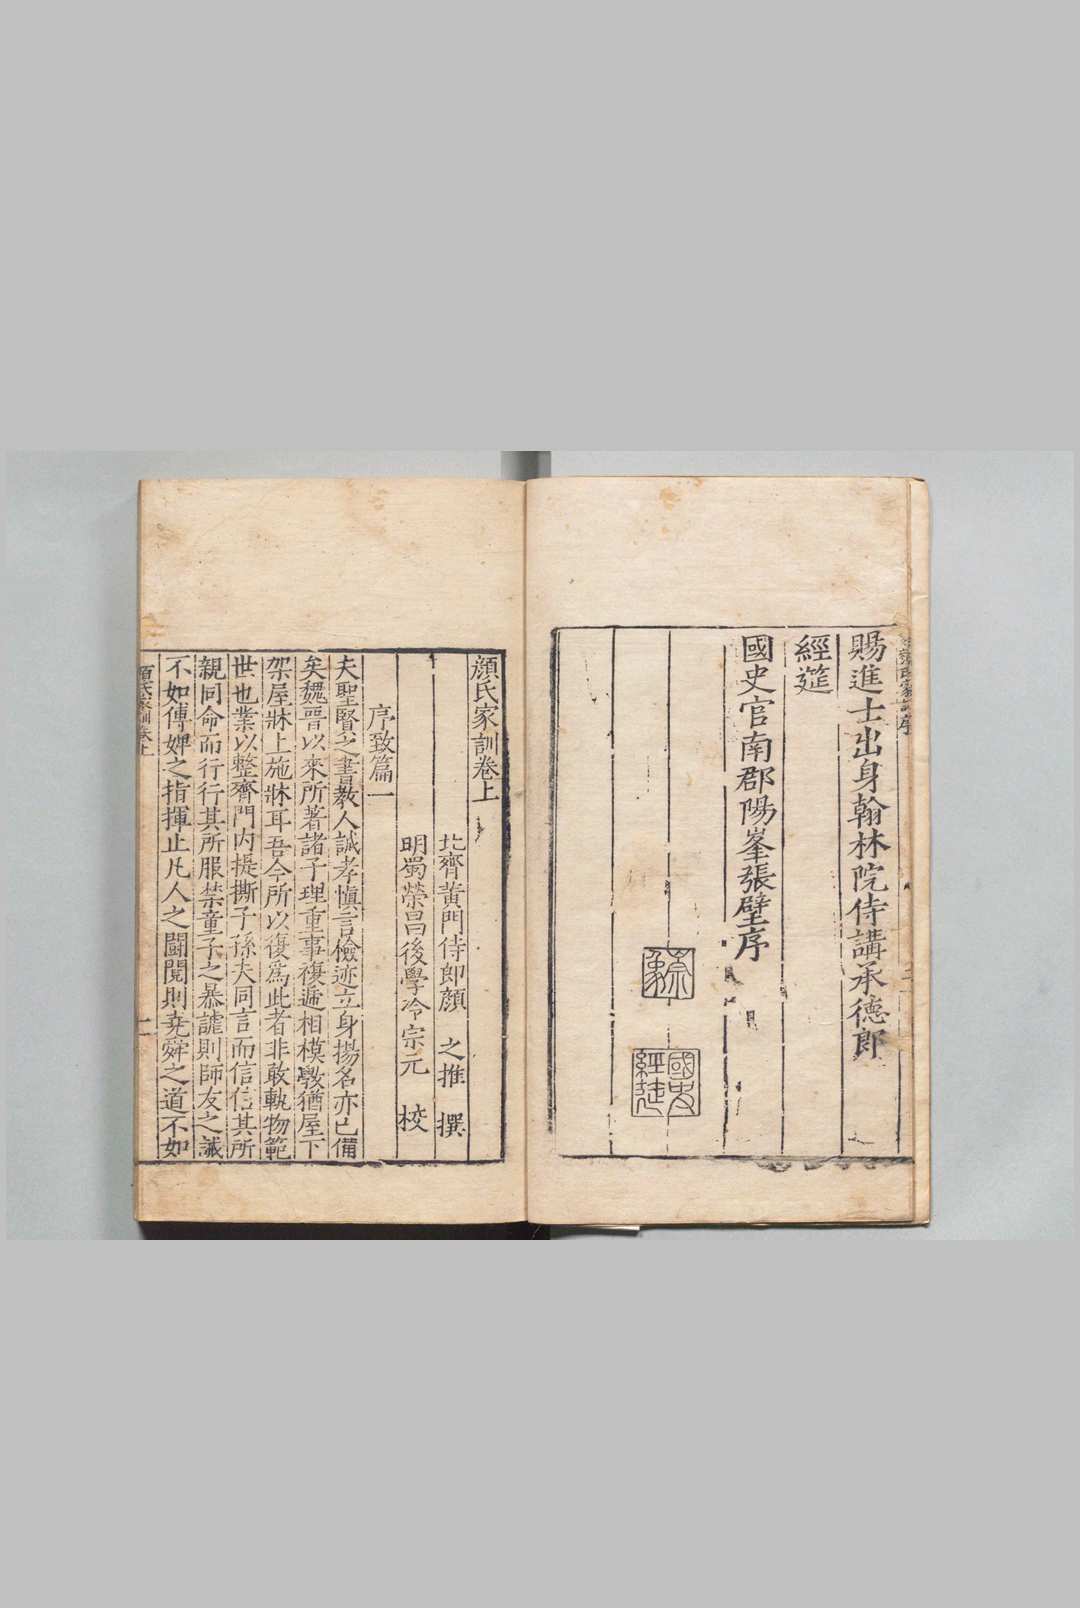 賜進士出身翰林院侍講承德郎
經筵
國史官南郡陽峯張璧序
國史
經筵
顔氏家訓卷上
北齊黄門侍郎顔 之推 撰
明蜀榮昌後學冷宗元 校
序致篇一
夫聖賢之書教人誠孝慎言檢迹立身揚名亦已備
矣魏晋以來所著諸子理重事複遞相模斆猶屋下
架屋牀上施牀耳吾今所以復爲此者非敢軌物範
世也業以整齊門内提撕子孫夫同言而信信其所
親同命而行行其所服禁童子之暴謔則師友之誡
不如傅婢之指揮止凡人之鬭鬩則堯舜之道不如
顔氏家訓卷上